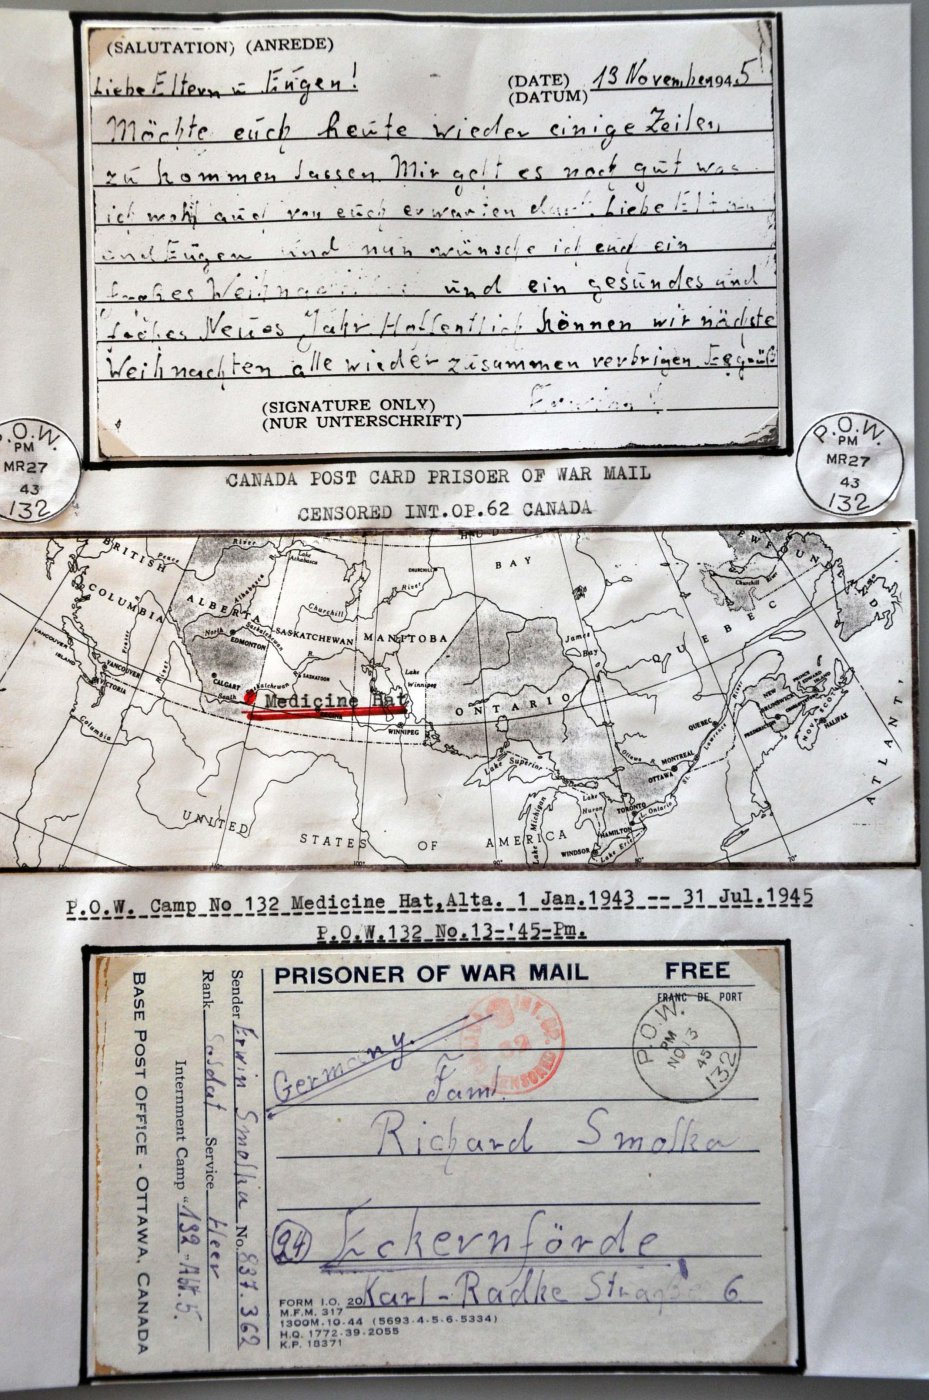 (SALUTATION) (ANREDE)
Liebe Eltern u Eugen!
(DATE)
(DATUM) 13 November 1945
Möchte euch heute wieder einige Zeilen
zu kommen lassen. Mir geht es noch gut was
ich wohl auch von euch erwarten darf. Liebe Eltern
und Eugen und nun wünsche ich euch ein
frohes Weihnachten und ein gesundes und
Neues Jahr. Hoffentlich können wir nächste
Weihnachten alle wieder zusammen verbrigen.
(SIGNATURE ONLY)
(NUR UNTERSCHRIFT)
P.O.W.
PM
MR27
43
132
P.O.W.
PM
MR27
43
132
CANADA POST CARD PRISOER OF WAR MAIL
CENSORED INT.OP.62 CANADA
BRITISH
COLUMBIA
ALBERTA
SASKATCHEWAN
MANITOBA
ONTARIO
QUEBEC
BAY
James
Bay
CHURCHILL
Churchill
River
Lake
Athabasca
North
Saskatchewan
R.
EDMONTON
CALGARY
SASKATOON
South
Saskatchewan
Medicine Hat
Lake
Winnipeg
WINNIPEG
VANCOUVER
ISLAND
VANCOUVER
VICTORIA
Columbia
Lake Superior
Lake Michigan
Lake
Huron
Lake Erie
L. Ontario
TORONTO
HAMILTON
WINDSOR
OTTAWA
MONTREAL
QUEBEC
St. Lawrence River
NEW
NOVA SCOTIA
HALIFAX
ATLANT
UNITED STATES OF AMERICA
P.O.W. Camp No 132 Medicine Hat,Alta. 1 Jan.1943 -- 31 Jul.1945
P.O.W.132 No.13-'45-Pm.
PRISONER OF WAR MAIL FREE
FRANC DE PORT
P.O.W.
PM
NO 3
45
132
INT. OP.
62
CENSORED
Germany.
Faml.
Richard Smolka
24 Eckernförde
Karl-Radke Straße 6
FORM I.O. 20
M.F.M. 317
1300M.10-44 (5693-4-5-6-5334)
H.Q. 1772-39-2055
K.P. 18371
Sender Erwin Smolka No. 837.362
Rank Soldat Service Heer
Internment Camp "132" Abt. 5.
BASE POST OFFICE - OTTAWA, CANADA